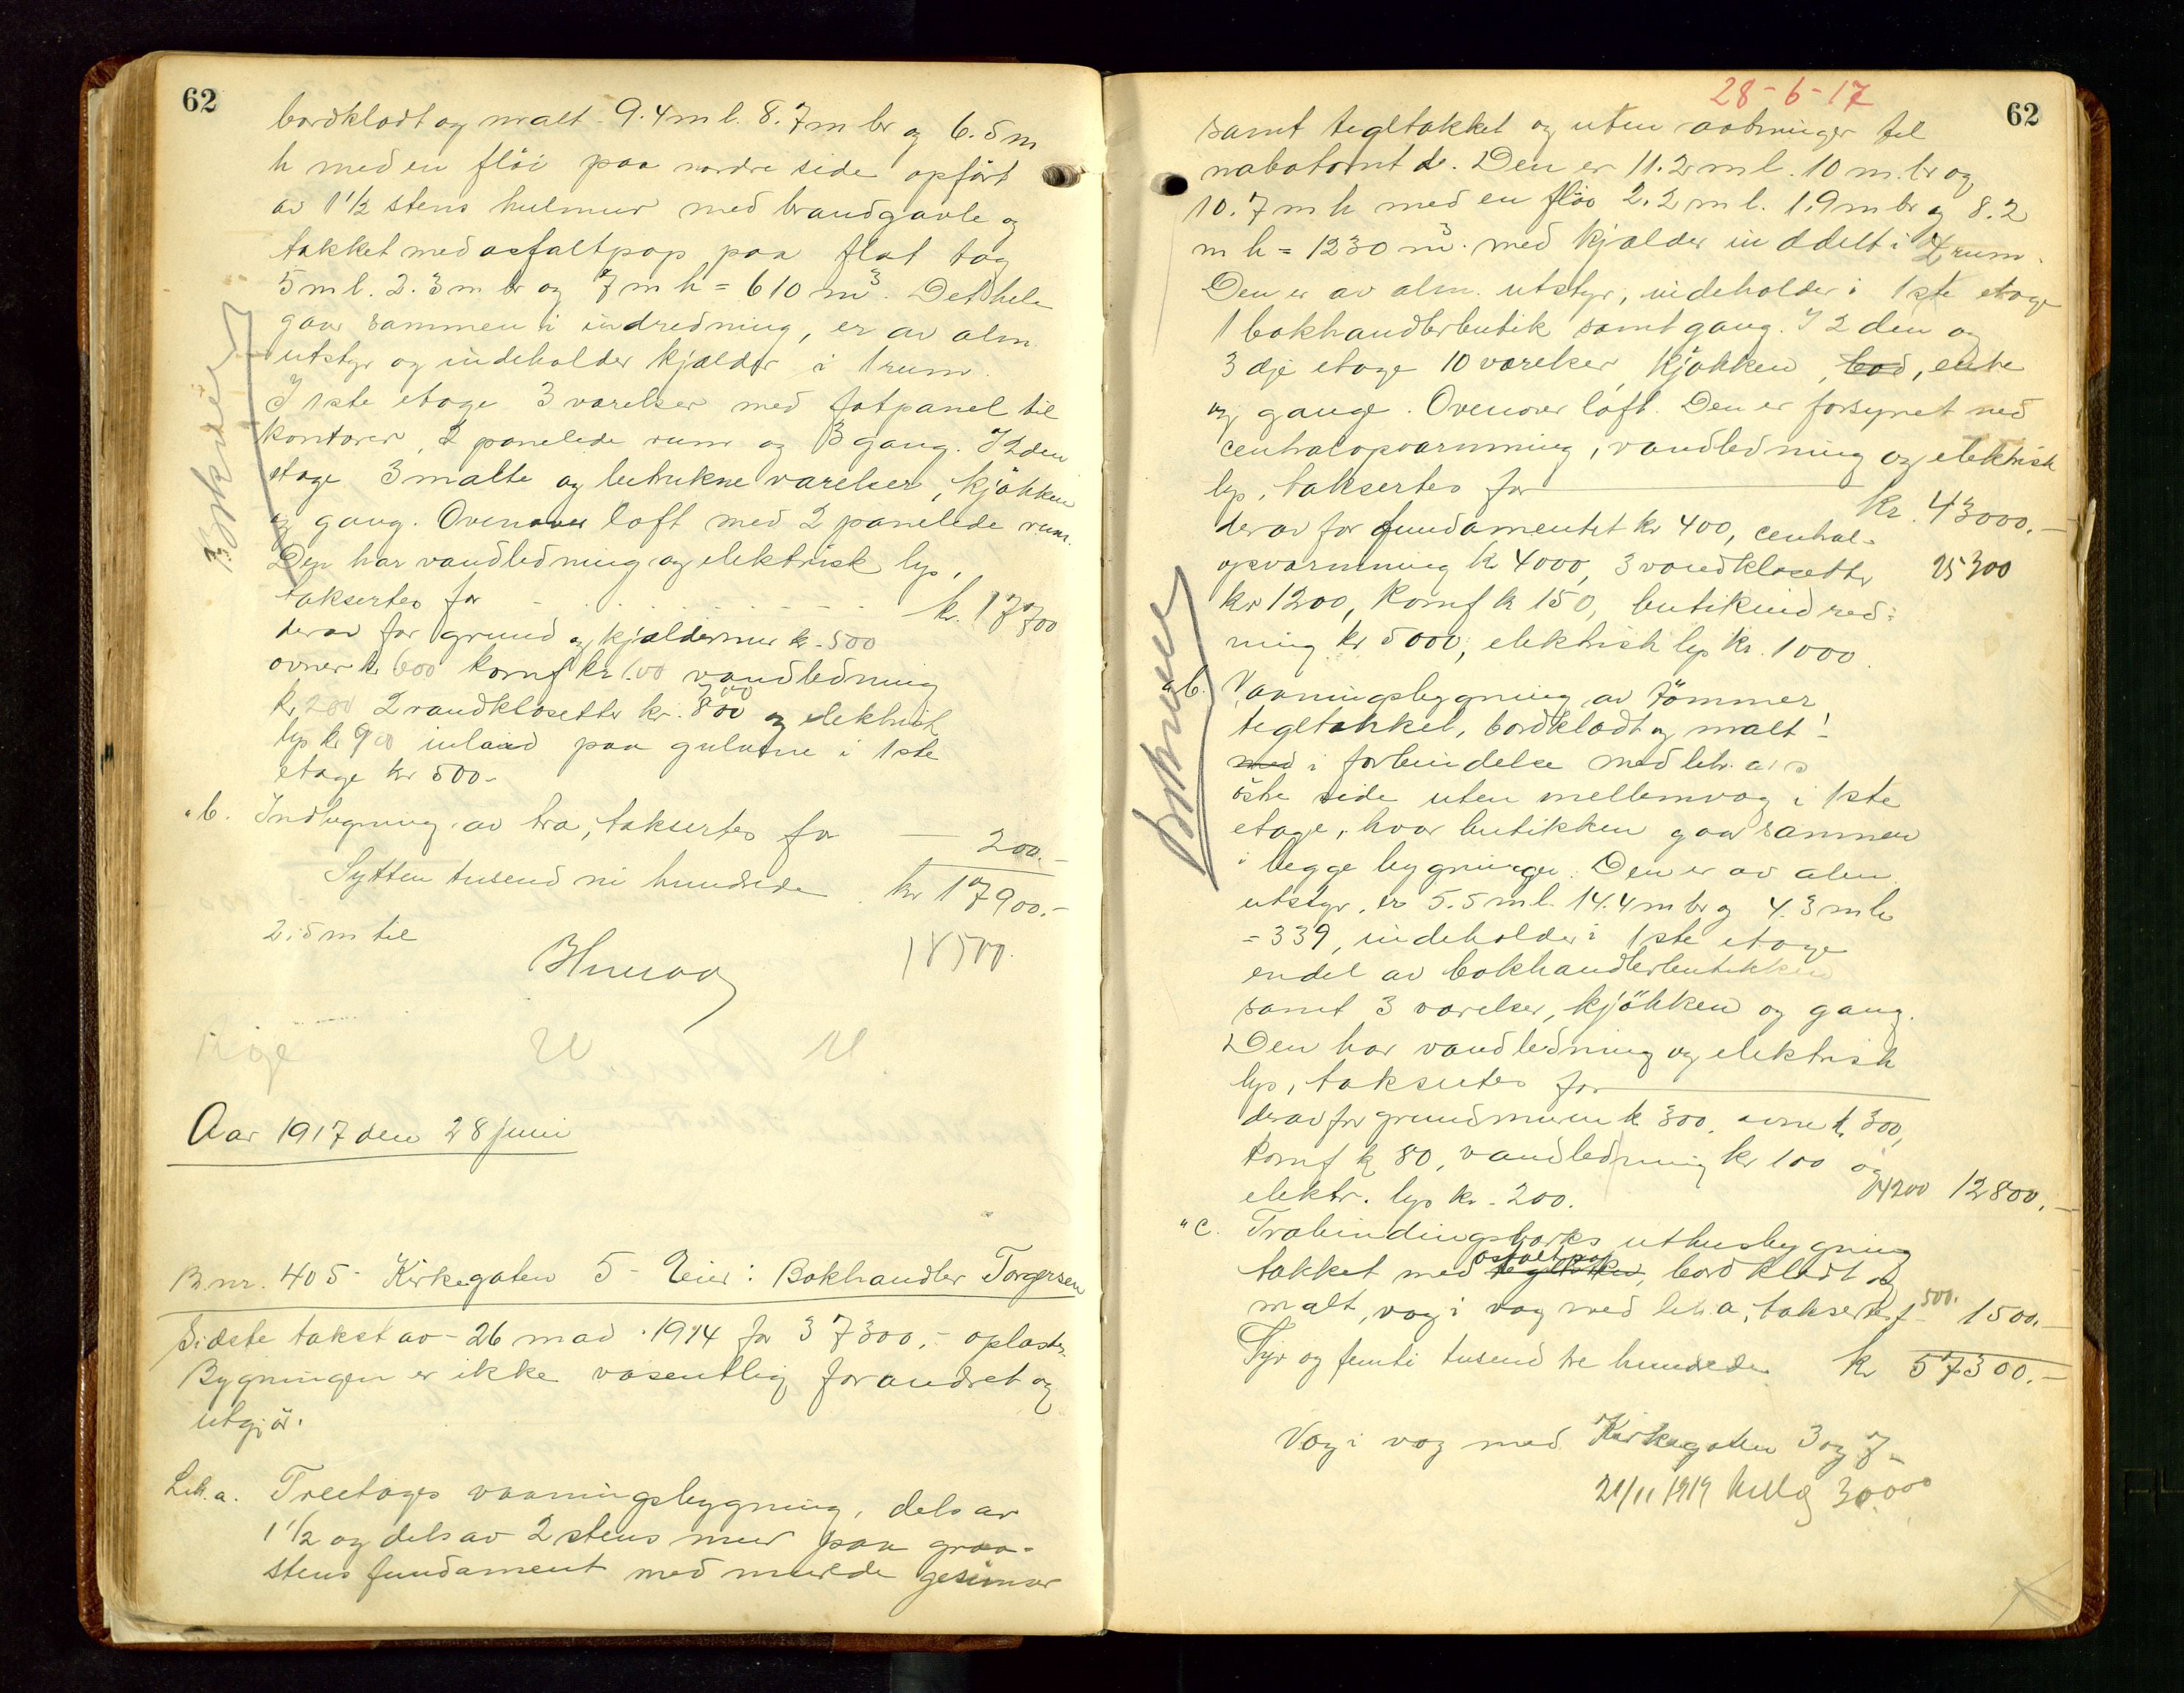 62
bordklædt og malt. 9.4 m l. 8.7 m br og 6.5 m
h med en flöi paa nordre side opfört
av 1 1/2 stens hulmur med brandgavle og
tækket med asfaltpap paa flat tag
5 m l. 2.3 m br og 7 m h = 610 m³. Det hele
gaar sammen i indredning, er av alm.
utstyr og indeholder kjælder i 1 rum.
I 1ste etage 3 værelser med fatpanel til
kontorer, 2 panelede rum og gang. I 2den
etage 3 malte og betrukne værelser, kjökken
og gang. Ovenover loft med 2 panelede rum.
Den har vandledning og elektrisk lys,
taksertes for kr. 17700
derav for grund og kjældermur kr. 500
ovner kr 600 komf kr 100 vandledning
kr 200 2 vandklosetter kr. 800 og elektrisk
lys kr 900 inlaid paa gulvene i 1ste
etage kr 500-
" b. Indbygning av træ, taksertes for — 200.-
Sytten tusend ni hundrede kr 17900.-
2.5 m til
18500.
Aar 1917 den 28 juni
B.nr. 405 - Kirkegaten 5 - Eier: Bokhandler Torgersen
Sidste takst av - 26 mai 1914 for 37300.- oplæstes.
Bygningen er ikke væsentlig forandret og
utgjör.
Litr. a. Treetages vaaningsbygning, dels av
1 1/2 og dels av 2 stens mur paa graa-
stens fundament med murede gesimser
28-6-17
62
samt tegltækket og uten aabninger til
nabotomt Den er 11.2 m l. 10 m. br og
10.7 m h med en flöi 2.2 m l. 1.9 m br og 8.2
m h = 1230 m³. med kjælder inddelt i 4 rum.
Den er av alm. utstyr, indeholder i 1ste etage
1 bokhandlerbutik samt gang. I 2den og
3dje etage 10 værelser, kjökken, bad, entre
og gange. Ovenover loft. Den er forsynet med
centralopvarmning, vandledning og elektrisk
lys, taksertes for kr. 43000.-
derav for fundamentet kr 400, central-
opvarmning kr 4000, 3 vandklosetter 25300
kr 1200, komf kr 150, butikindred-
ning kr 5000, elektrisk lys kr. 1000.
" b. Vaaningsbygning av tömmer
tegltækket, bordklædt og malt!
med i forbindelse med litr. a's
östre side uten mellemvæg i 1ste
etage, hvor butikken gaar sammen
i begge bygninger. Den er av alm.
utstyr, er 5.5 m l. 14.4 m br og 4.3 m h
= 339, indeholder i 1ste etage
endel av bokhandlerbutikken
samt 3 værelser, kjökken og gang.
Den har vandledning og elektrisk
lys, taksertes for
derav for grundmuren kr 300, ovne kr 300,
komf kr 80, vandledning kr 100 og
elektr. lys kr. 200. 14200 12800.-
" c. Træbindingsværks uthusbygning
tækket med asfaltpap, bordklædt og
malt, væg i væg med litr. a, taksertes f 500. 1500.-
Syv og femti tusend tre hundrede kr 57300.-
Væg i væg med Kirkegaten 3 og 7.
21/11 1919 tillæg 30,000